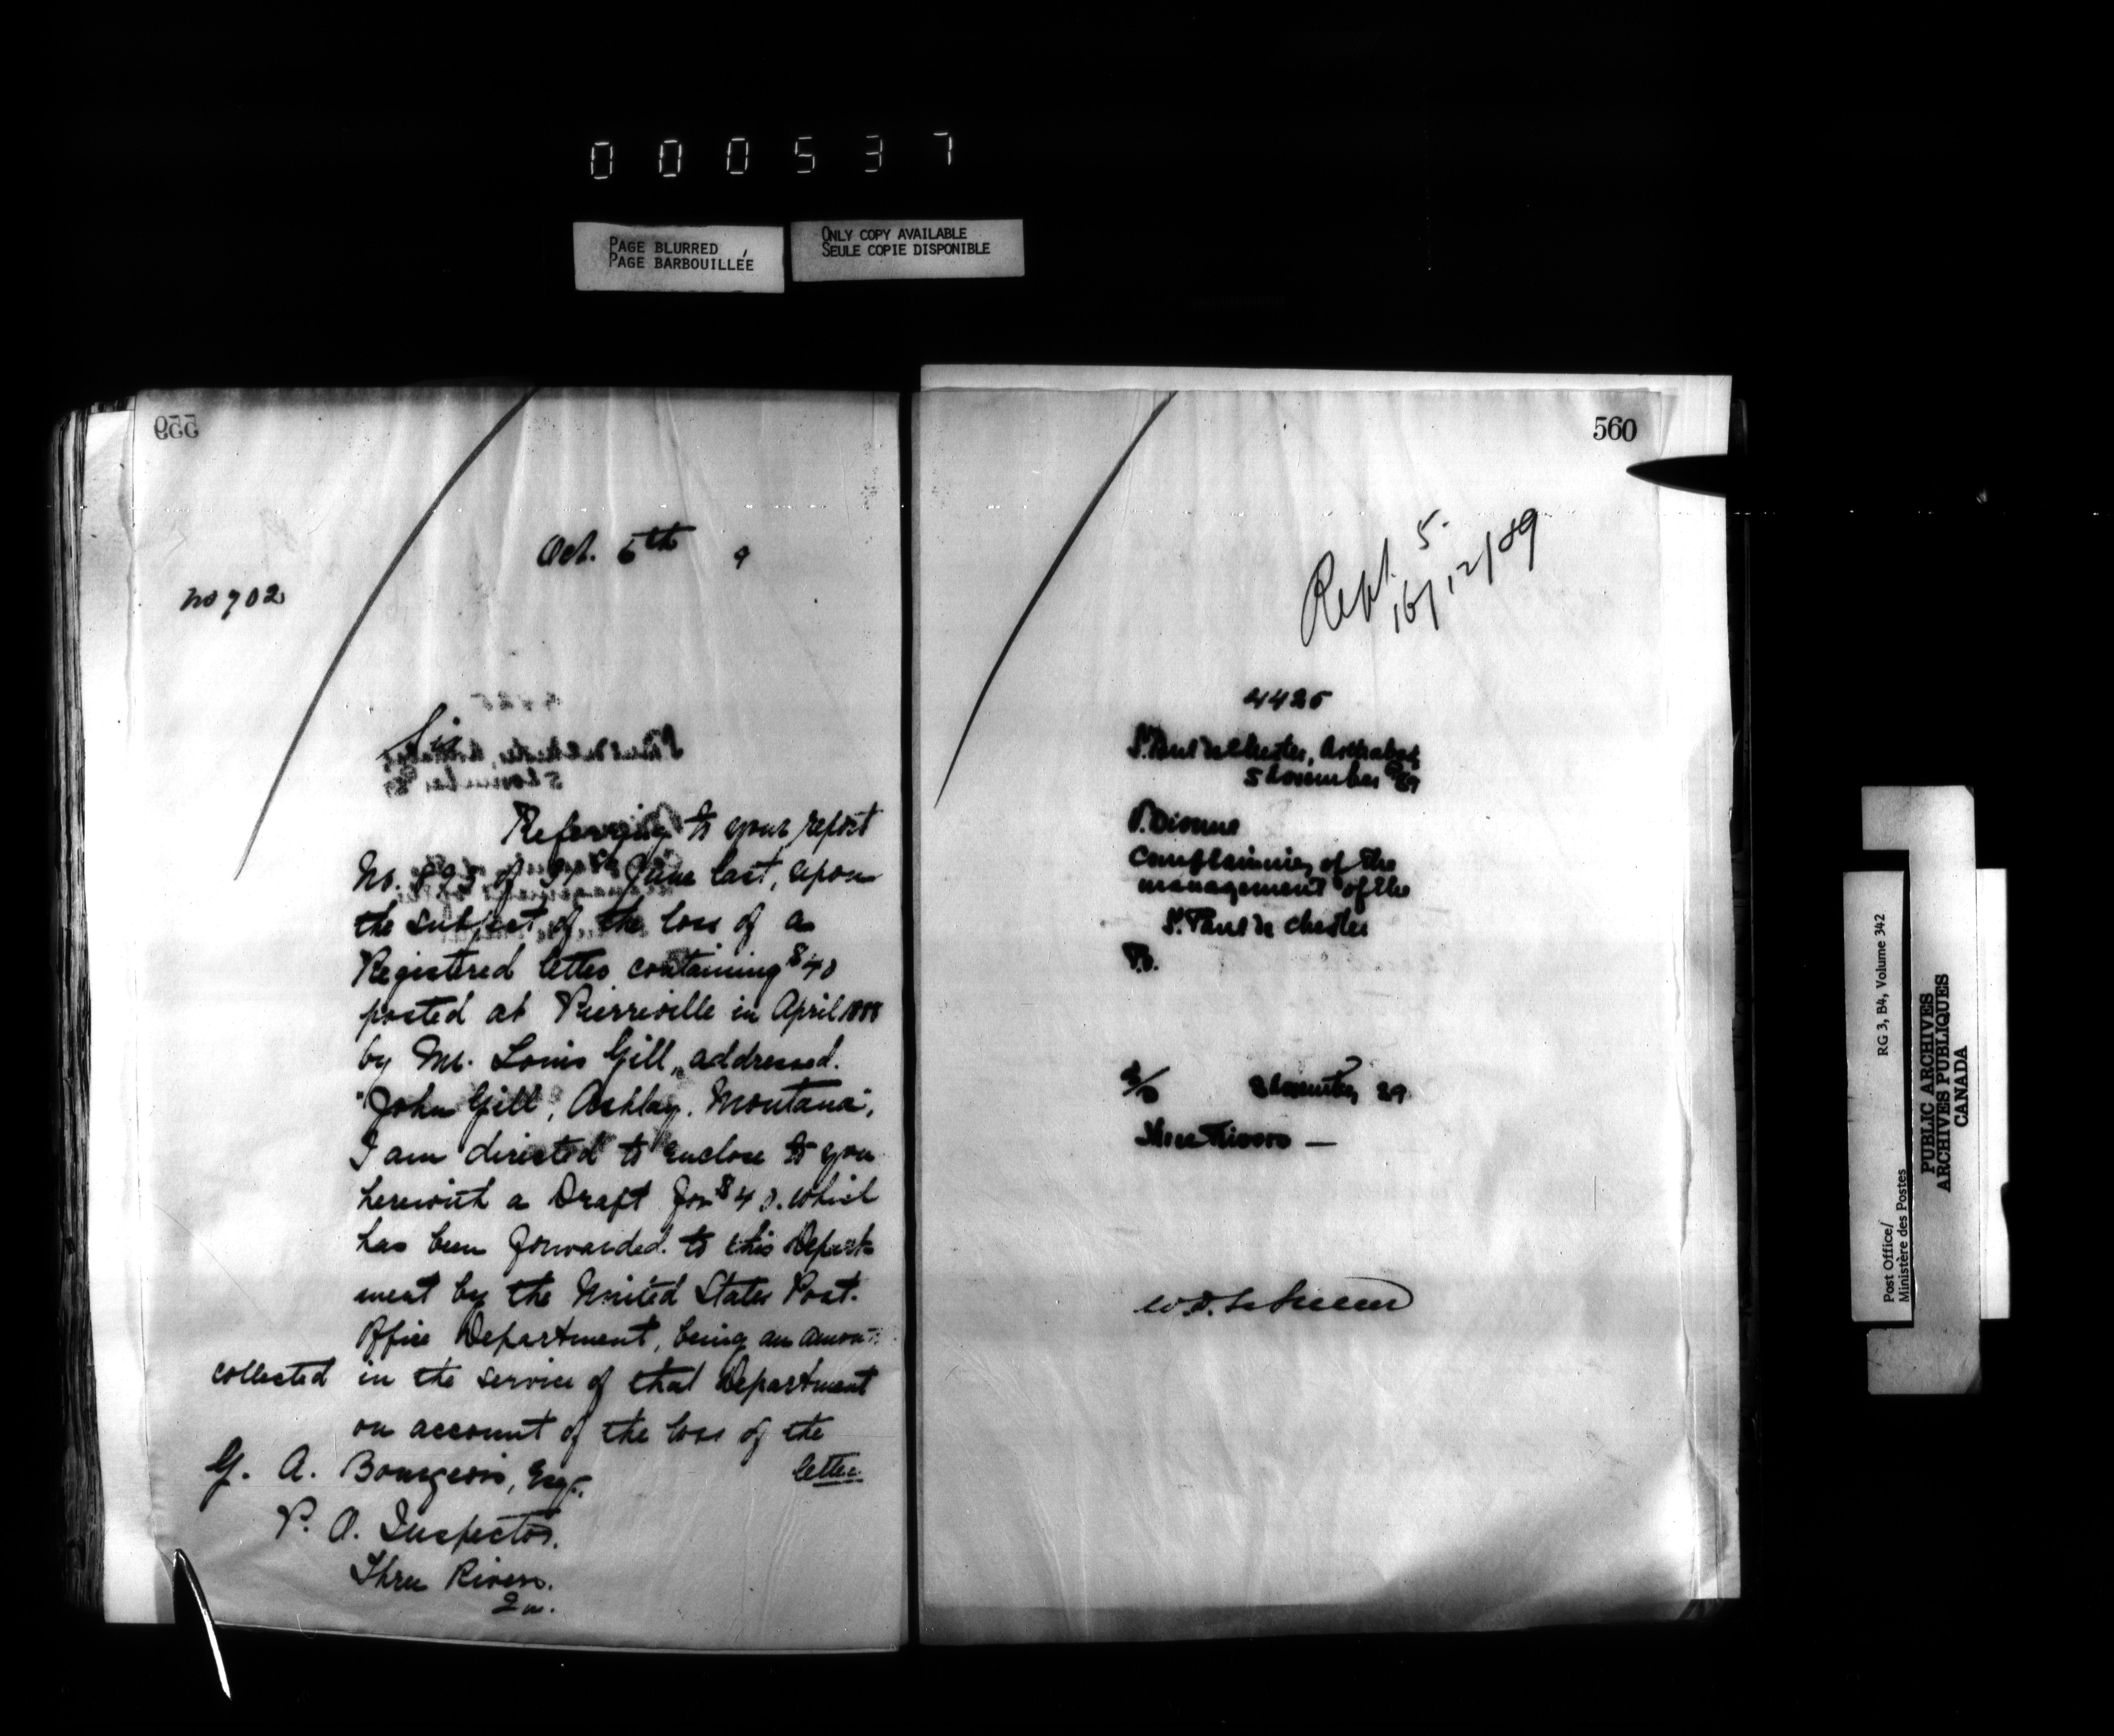 000537
PAGE BLURRED
PAGE BARBOUILLÉE
ONLY COPY AVAILABLE
SEULE COPIE DISPONIBLE
559
Oct. 5th 9
No 702
Sir
Referring to your report
No. of June last, upon
the subject of the loss of a
Registered letter containing $40
posted at Pierreville in April 1888
by Mr. Louis Gill, addressed.
"John Gill, Ashley. Montana",
I am directed to enclose to you
herewith a Draft for $40. which
has been forwarded to this Depart-
ment by the United States Post.
Office Department, being an amount
collected in the service of that Department
on account of the loss of the
letter
G. A. Bourgeois, Esqr.
P. O. Inspector.
Three Rivers.
Qu.
560
Rept. 5.
16/12/89
4425
St. Paul de Chester, Arthabaska
5 November 89
P. Dionne
Complaining of the
management of the
St. Paul de Chester
P.O.
November 89
Three Rivers —
Post Office/
Ministère des Postes
RG 3, B4, Volume 342
PUBLIC ARCHIVES
ARCHIVES PUBLIQUES
CANADA